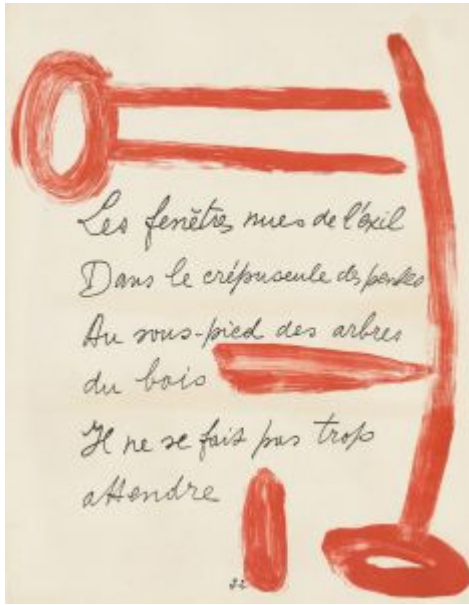 Les fenêtres nues de l'exil
Dans le crépuscule des
Au sous-pied des arbres
du bois
Il ne se fait pas trop
attendre
22